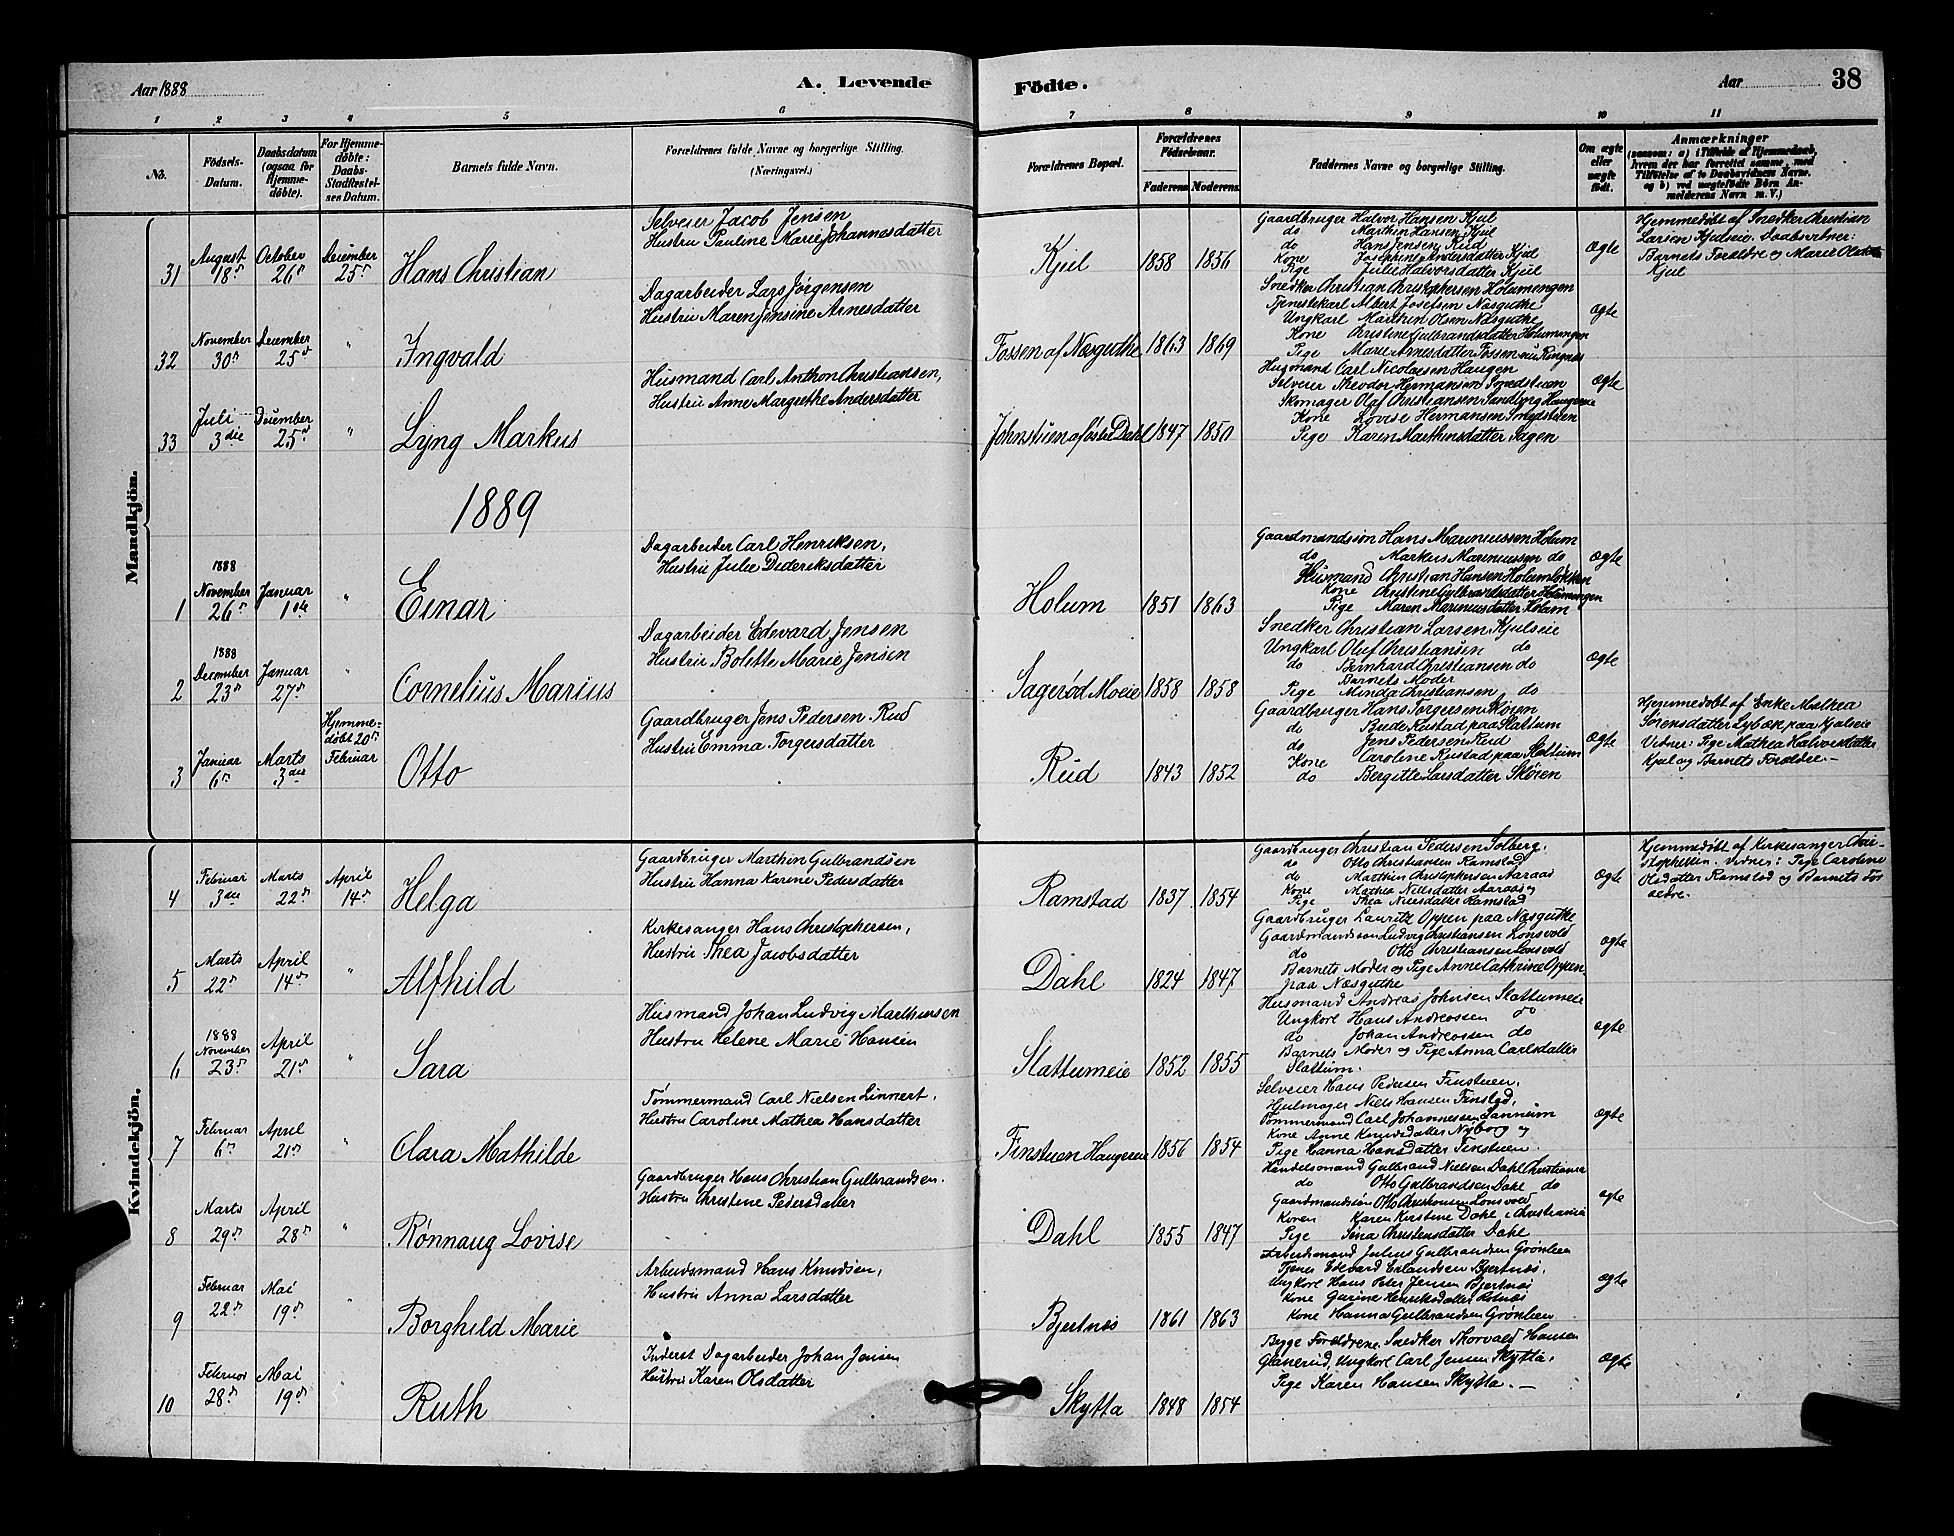 Aar 1888
A. Levende
Födte.
Aar
38
1 2 3 4 5 6 7 8 9 10 11
No.
Födsels-
Datum.
Daabsdatum
(ogsaa för
Hjemme-
döbte).
For Hjemme-
döbte:
Daabs-
Stadfæstel-
ses Datum.
Barnets fulde Navn.
Forældrenes fulde Navne og borgerlige Stilling.
(Næringsvei.)
Forældrenes Bopæl.
Forældrenes
Födselsaar.
Faderens Moderens
Faddernes Navne og borgerlige Stilling.
Om ægte
eller
uægte
födt.
Anmærkninger
(saasom: a) i Tilfælde af Hjemmedaab,
hvem der har forrettet samme, med
Tilföielse af to Daabsvidners Navne,
og b) ved uægtefödte Börn An-
melderens Navn m. V.)
Mandkjön.
31
August
18de
October
26de
December
25de
Hans Christian
Selveier Jacob Jensen
Hustru Pauline Marie Johannesdatter
Kjul
1858 1856
Gaardbruger Halvor Hansen Kjul
do Marthin Hansen Kjul
do Hans Jensen Rud
Kone Josephine Andersdatter Kjul
Pige Julie Halvorsdatter Kjul
Ægte
Hjemmedøbt af Snedker Christian
Larsen Kjulseie. Daabsvidner:
Barnets Forældre og Marie
Kjul
32
November
30de
December
25de
"
Ingvald
Dagarbeider Lars Jørgensen
Hustru Maren Jensine Arnesdatter
Fossen af Næsguthe
1863 1869
Snedker Christian Christophersen Holumengen
Tjenestekarl Albert Josefsen Næsguthe
Ungkarl Marthin Olsen Næsguthe
Kone Christine Gulbrandsdatter Holumengen
Pige Marie Arnesdatter Fossen
Ægte
33
Juli
3die
December
25de
"
Lyng Markus
Husmand Carl Anthon Christiansen,
Hustru Anne Margrethe Andersdatter
Johnstuen af østre Dahl
1847 1850
Husmand Carl Nicolaisen Haugen
Selveier Theodor Hermansen Smedstuen
Skomager Olaf Christiansen
Kone Lovise Hermansen Smedstuen
Pige Karen Marthinsdatter Sagen
Ægte
1889
1
1888
November
26de
Januar
1ste
"
Einar
Dagarbeider Carl Henriksen,
Hustru Julie Dideriksdatter
Holum
1851 1863
Gaardmandssøn Hans Marinussen Holum
do Markus Marinussen do
Husmand Christian Hansen Holumløkken
Kone Christine Gulbrandsdatter Holumengen
Pige Maren Marinusdatter Holum
Ægte
2
1888
December
23de
Januar
27de
"
Cornelius Marius
Dagarbeider Edevard Jensen
Hustru Bolette Marie Jensen
Sagerød Moeie
1858 1858
Snedker Christian Larsen Kjulseie
Ungkarl Oluf Christiansen do
do Bernhard Christiansen do
Barnets Moder
Pige Minda Christiansen do
Ægte
3
Januar
6de
Marts
3die
Hjemme-
døbt 20de
Februar
Otto
Gaardbruger Jens Pedersen Rud
Hustru Emma Torgersdatter
Rud
1843 1852
Gaardbruger Hans Torgersen Skøien
do Rustad paa Slattum
do Jens Pedersen Rud
Kone Caroline Rustad paa Slattum
do Bergitte Larsdatter Skøien
Ægte
Hjemmedøbt af Enke Mathea
Sørensdatter Lybæk paa Kjulseie
Vidner: Pige Mathea Halvorsdatter
Kjul og Barnets Forældre.—
Kvindekjön.
4
Februar
3die
Marts
22de
April
14de
Helga
Gaardbruger Marthin Gulbrandsen
Hustru Hanna Karine Pedersdatter
Ramstad
1837 1854
Gaardbruger Christian Pedersen Solberg,
do Otto Christiansen Ramstad
do Matthin Christophersen Aaraas
Kone Mathea Nielsdatter Aaraas og
Pige Thea Nielsdatter Ramstad
Ægte
Hjemmedøbt af Kirkesanger Chri-
stophersen. Vidner: Pige Caroline
Olsdatter Ramstad og Barnets For-
ældre.
5
Marts
22de
April
14de
"
Alfhild
Kirkesanger Hans Christophersen,
Hustru Thea Jacobsdatter
Dahl
1824 1847
Gaardbruger Lauritz Oppen paa Næsguthe
Gaardmandssøn Ludvig Christiansen Lonsvold
do Otto Christiansen Lonsvold
Barnets Moder og Pige Anne Cathrine Oppen
paa Næsguthe
Ægte
6
1888
November
23de
April
21de
"
Sara
Husmand Johan Ludvig Marthinsen
Hustru Helene Marie Hansen
Slattumeie
1852 1855
Husmand Andreas Johnsen Slattumeie
Ungkarl Hans Andreassen do
do Johan Andreassen do
Barnets Moder og Pige Anna Carlsdatter
Slattum.
Ægte
7
Februar
6de
April
21de
"
Clara Mathilde
Tømmermand Carl Nielsen Linnert,
Hustru Caroline Mathea Hansdatter
Finstuen Haugeneie
1856 1854
Selveier Hans Pedersen Finstuen,
Hjulmager Niels Hansen Finstad,
Tømmermand Carl Johannessen Sannum
Kone Anne Knudsdatter Nyborg og
Pige Hanna Hansdatter Finstuen.
Ægte
8
Marts
29de
April
28de
"
Rønnaug Lovise
Gaardbruger Hans Christian Gulbrandsen.
Hustru Christine Pedersdatter
Dahl
1855 1847
Handelsmand Gulbrand Nielsen Dahl Christiania
do Otto Gulbrandsen Dahl do
Gaardmandssøn Otto Christiansen Lonsvold
Konen Karen Kirstine Dahl i Christiania
Pige Sina Christensdatter Dahl
Ægte
9
Februar
22de
Mai
19de
"
Borghild Marie
Arbeidsmand Hans Knudsen,
Hustru Anna Larsdatter
Bjertnæs
1861 1863
Arbeidsmand Julius Gulbrandsen Grønlien
Tjener Edevard Erlandsen Bjertnæs,
Ungkarl Hans Peter Jensen Bjertnæs
Kone Garine Henriksdatter Rotnæs
Kone Hanna Gulbrandsen Grønlien
Ægte
10
Februar
28de
Mai
19de
Ruth
Inderst Dagarbeider Johan Jensen
Hustru Karen Olsdatter
Skytta
1848 1854
Begge Forældrene Snedker Thorvald Hansen
Glanerud, Ungkarl Carl Jensen Skytta,
Pige Karen Hansen Skytta.—
Ægte